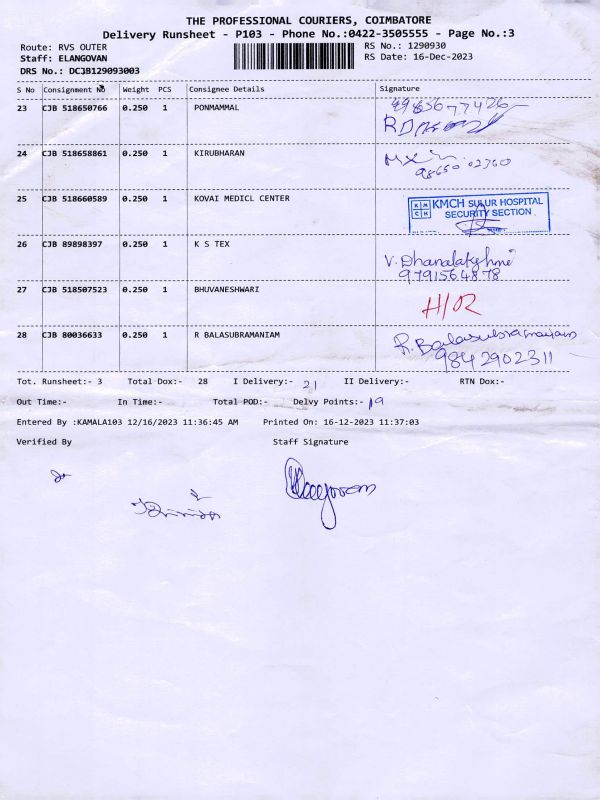 THE PROFESSIONAL COURIERS, COIMBATORE
Delivery Runsheet - P103 - Phone No.:0422-3505555 - Page No.:3
Route: RVS OUTER RS No.: 1290930
Staff: ELANGOVAN RS Date: 16-Dec-2023
DRS No.: DCJB129093003
S No Consignment No Weight PCS Consignee Details Signature
23 CJB 518650766 0.250 1 PONMAMMAL
24 CJB 518658861 0.250 1 KIRUBHARAN
25 CJB 518660589 0.250 1 KOVAI MEDICL CENTER KMCH SULUR HOSPITAL
SECURITY SECTION
26 CJB 89898397 0.250 1 K S TEX
V. Dhanalakshmi
9791564878
27 CJB 518507523 0.250 1 BHUVANESHWARI H/R
28 CJB 80036633 0.250 1 R BALASUBRAMANIAM R. Balasubramaniam
9842902311
Tot. Runsheet:- 3 Total Dox:- 28 I Delivery:- 21 II Delivery:- RTN Dox:-
Out Time:- In Time:- Total POD:- Delvy Points:- 19
Entered By :KAMALA103 12/16/2023 11:36:45 AM Printed On: 16-12-2023 11:37:03
Verified By Staff Signature